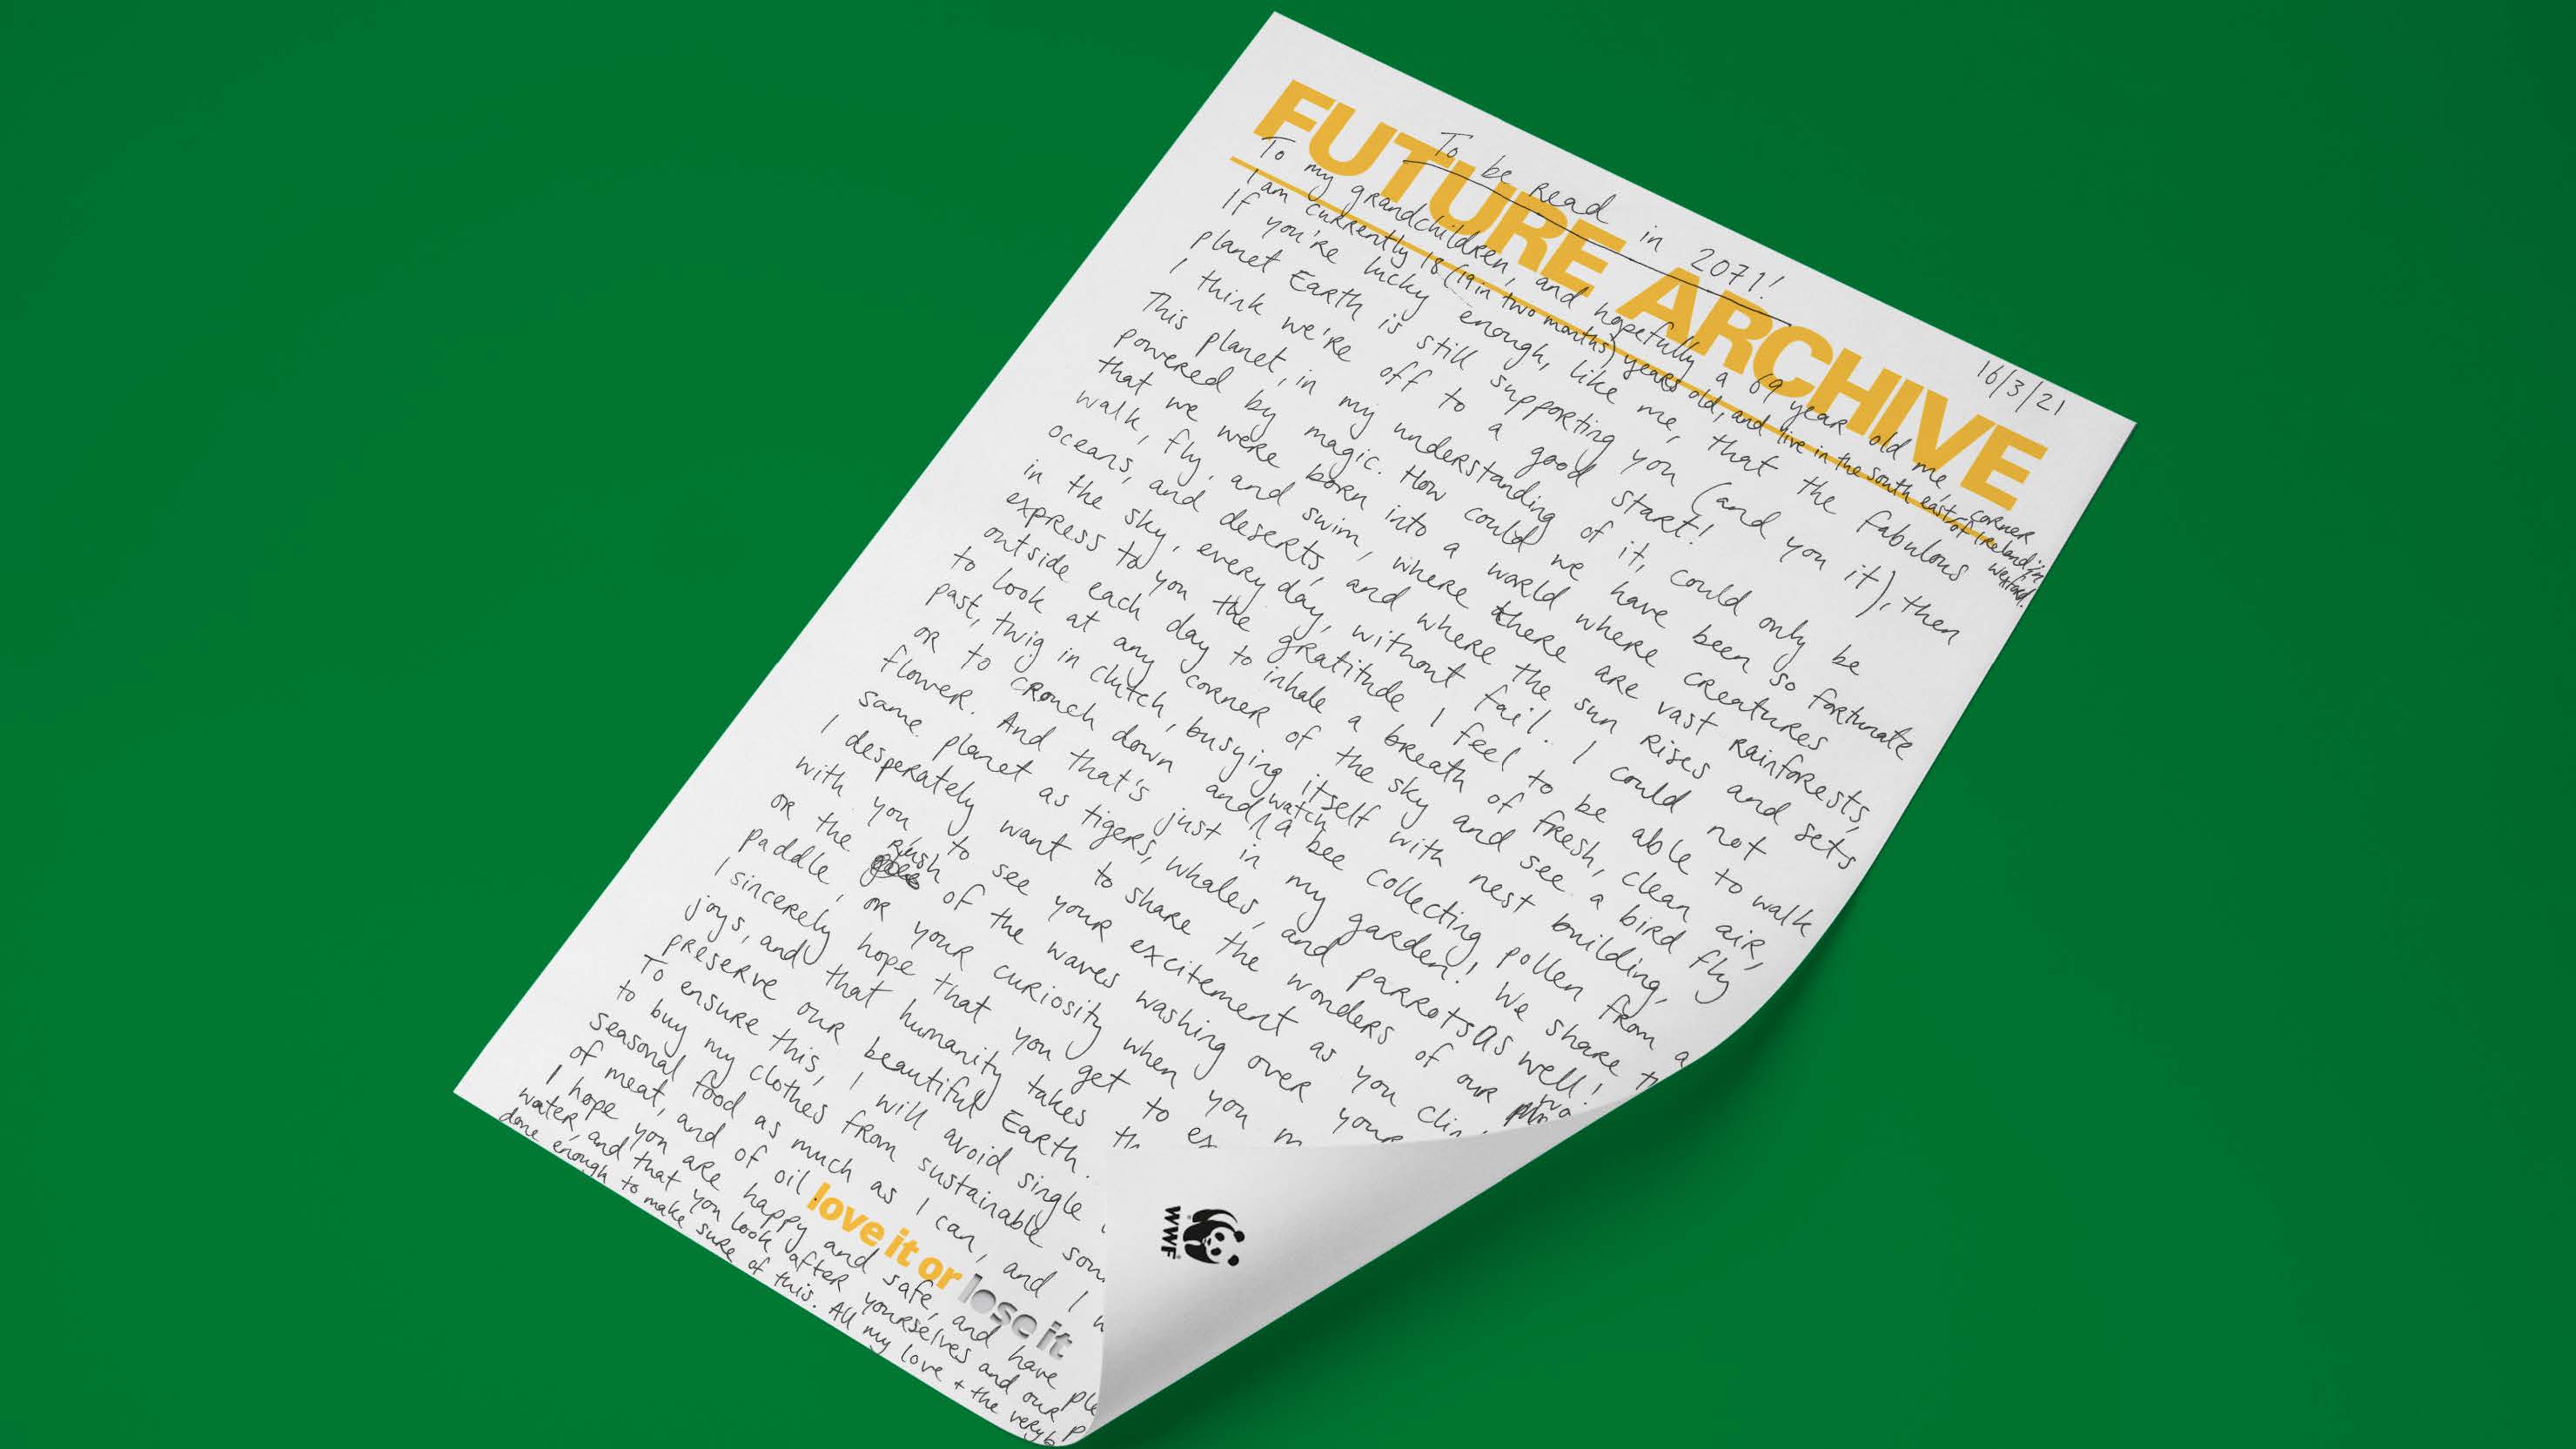 To be read in 2071!
FUTURE ARCHIVE
16/3/21
To my grandchildren, and hopefully a 69 year old me,
I am currently 18 (19 in two months) years old, and live in the south east corner of Ireland, in Wexford.
If you're lucky enough, like me, that the fabulous
planet Earth is still supporting you (and you it), then
I think we're off to a good start!
This planet, in my understanding of it, could only be
powered by magic. How could we have been so fortunate
that we were born into a world where creatures
walk, fly, and swim, where there are vast rainforests,
oceans, and deserts, and where the sun rises and sets
in the sky, every day, without fail. I could not
express to you the gratitude I feel to be able to walk
outside each day to inhale a breath of fresh, clean air,
to look at any corner of the sky and see a bird fly
past, twig in clutch, busying itself with nest building,
or to crouch down and watch a bee collecting pollen from a
flower. And that's just in my garden! We share
same planet as tigers, whales, and parrots as well!
I desperately want to share the wonders of our
with you, to see your excitement as you
or the rush of the waves washing over your
paddle, or your curiosity when you
I sincerely hope that you get to
joys, and that humanity takes
preserve our beautiful Earth.
To ensure this, I will avoid single
to buy my clothes from sustainable
seasonal food as much as I can, and I
of meat, and of oil
love it or lose it
I hope you are happy and safe, and have
water, and that you look after yourselves and our
done enough to make sure of this. All my love + the very
WWF